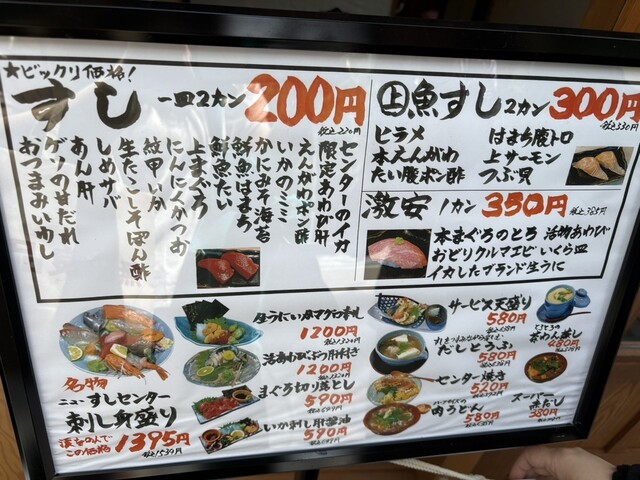 ★ビックリ価格!
すし 一皿2カン 200円
税込220円
センターのイカ
限定あわび肝
えんがわポン酢
いかのミミ
かにみそ海苔
鮮魚はまち
鮮魚たい
上まぐろ
にんにくかつお
紋甲いか
生たこしそぽん酢
しめサバ
あん肝
ゲソの甘だれ
おつまみいわし
上魚すし 2カン 300円
税込330円
ヒラメ はまち腹トロ
本えんがわ 上サーモン
たい腹ポン酢 つぶ貝
激安 1カン 350円
税込385円
本まぐろのとろ 活物あわび
おどりクルマエビ いくら皿
イカしたブランド生うに
名物
ニューすしセンター
刺し身盛り
1395円
この価格
1200円
活あわび
1200円
まぐろ切り落とし
590円
いか刺し肝醤油
590円
サービス天盛り
580円
だしとうふ
580円
センター焼き
520円
肉うどん
580円
茶わん蒸し
スーパー
赤だし
380円